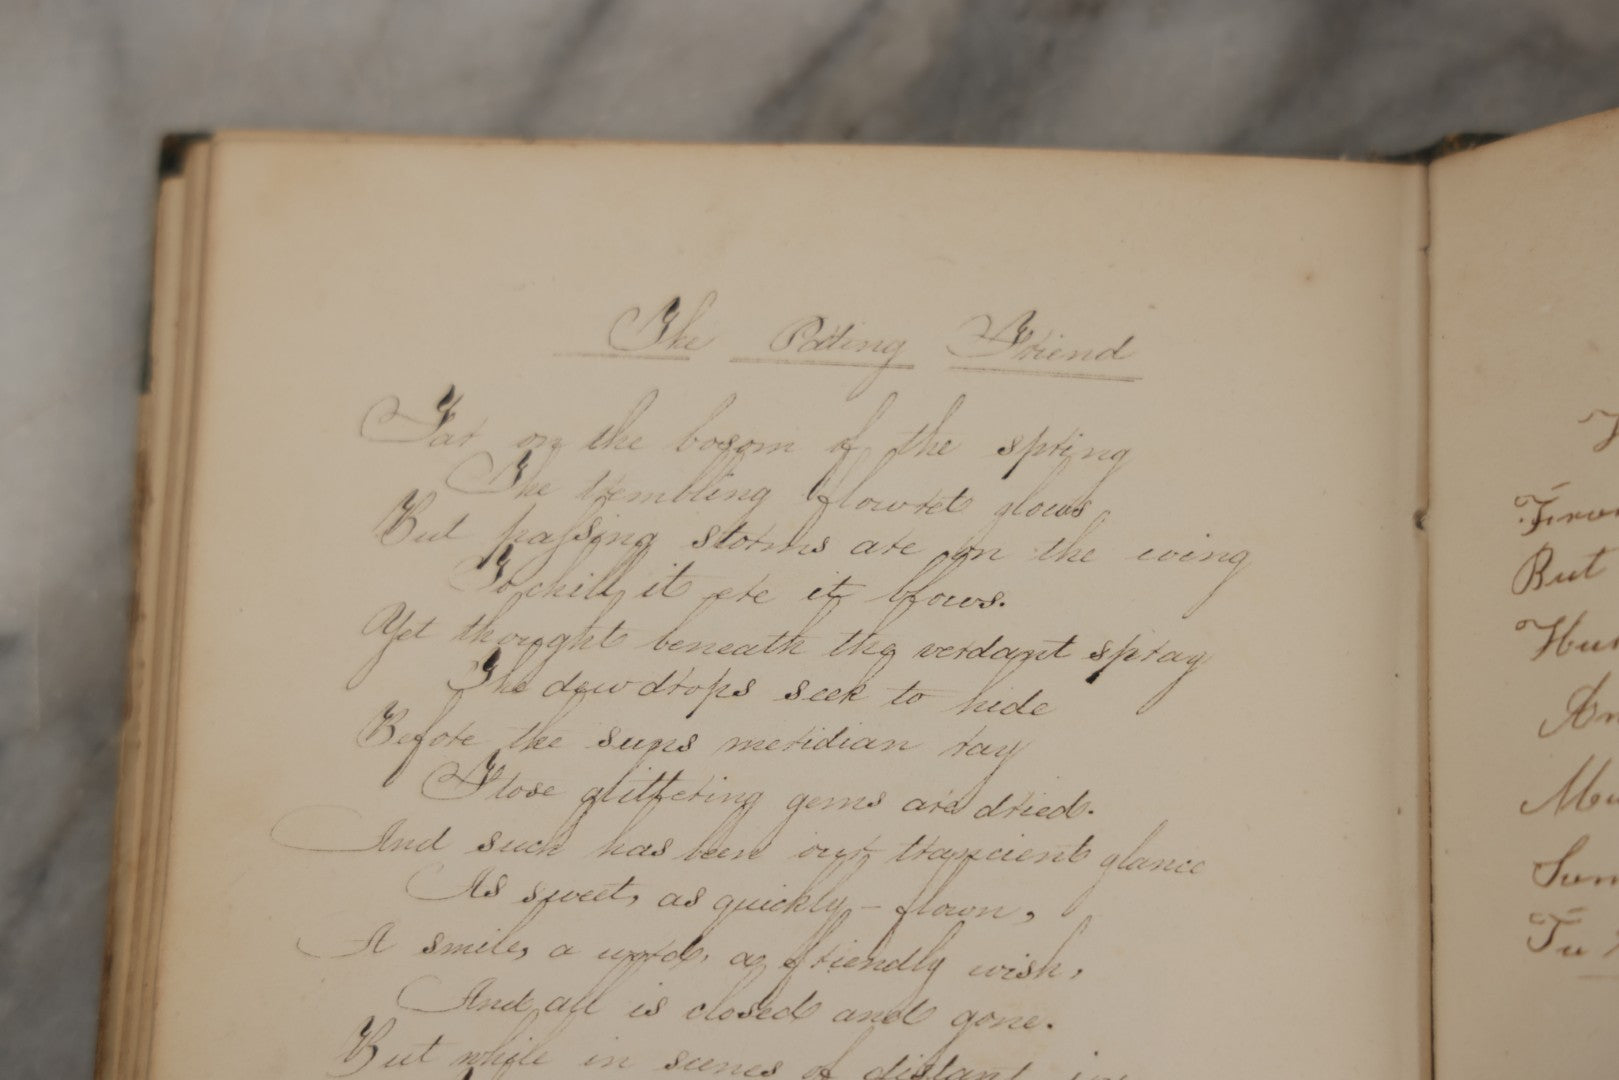 The Parting Friend
Far on the bosom of the spring
The trembling flowret glows
But passing storms are on the wing
To chill it ere it blows.
Yet thought beneath the verdant spray
The dewdrops seek to hide
Before the suns meridian ray
Those glittering gems are dried.
And such has been our trancient glance
As sweet, as quickly - flown,
A smile, a word, a friendly wish,
And all is closed and gone.
But while in scenes of distant
But
An